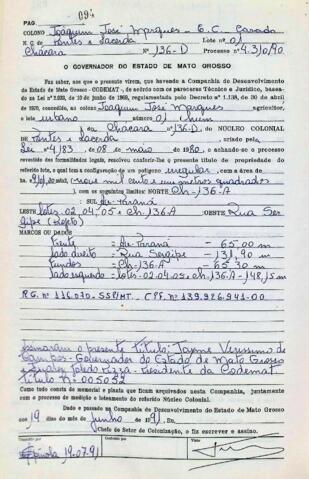 PAG. 094
COLONO Joaquim José Marques - E.C. Casado
N. C. de Pontes e Lacerda Lote nº 01
Chácara Nº 136-D Processo nº 4.310/90
O GOVERNADOR DO ESTADO DE MATO GROSSO
Faz saber, aos que o presente virem, que havendo a Companhia de Desenvolvimento
do Estado de Mato Grosso - CODEMAT -, de acordo com os pareceres Técnico e Jurídico, basea-
do na Lei nº 2.933, de 10 de junho de 1969, regulamentada pelo Decreto nº 1.138, de 30 de abril
de 1970, concedido ao colono Joaquim José Marques agricultor,
o lote urbano número 01 (hum)
da Chácara nº 136-D, DO NÚCLEO COLONIAL
de Pontes e Lacerda, criado pela
Lei 4.183 de 08 de maio de 1980, e achando-se o processo
revestido das formalidades legais, resolveu conferir-lhe o presente título de propriedade do
referido lote, o qual tem a configuração de um polígono irregular, com a área de
metros quadrados
), com os seguintes limites: NORTE Ch-136-A
SUL Av. Paraná
LESTE Lotes-02.04.05 e Ch-136-A OESTE Rua Ser-
gipe
MARCOS OU DADOS
Frente - Av. Paraná - 65,00 m
Lado direito - Rua Sergipe - 131,90 m
Fundos - Ch-136-A - 65,30 m
Lado esquerdo - Lotes-02.04.05 e Ch-136-A - 148,15 m
R.G. nº 116.070-SSP/MT. CPF. nº 139.926.941-00
Assinaram o presente título: Jayme Veríssimo de
Campos - Governador do Estado de Mato Grosso
e Toledo Pizza - Presidente da Codemat
Título Nº 005052
Como tudo consta do memorial e planta que ficam arquivados nesta Companhia, juntamente
com o processo de medição e loteamento do referido Núcleo Colonial.
Dado e passado na Companhia de Desenvolvimento do Estado de Mato Grosso
aos 19 dias de junho de 1991
Chefe do Setor de Colonização, o fiz escrever e assino.
Escriturário Conferido Visto
19-07-91